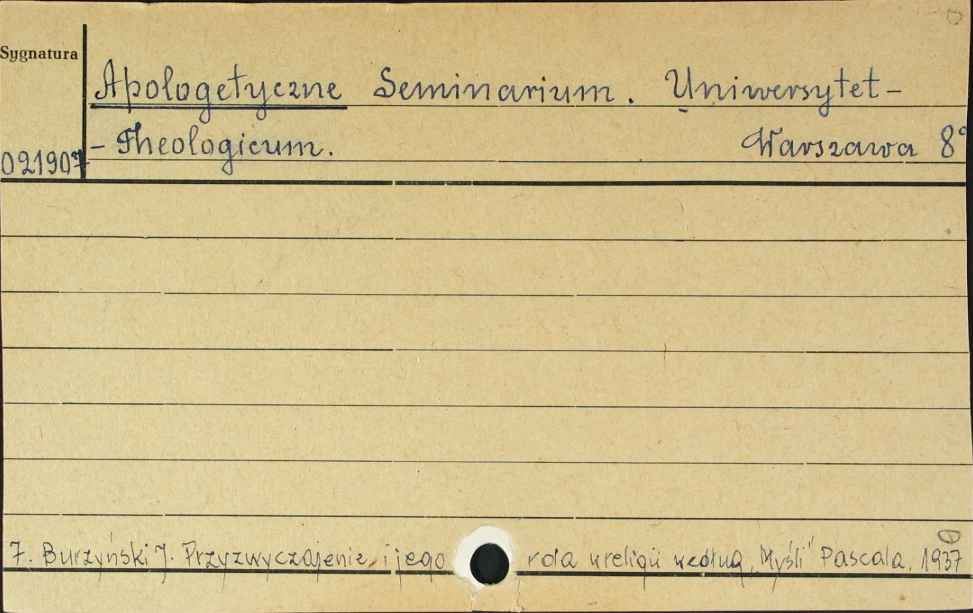 Sygnatura
Apologetyczne Seminarium. Uniwersytet-
- Theologicum. Warszawa 8°
021907
7. Burzyński J. Przyzwyczajenie i jego rola w religii według „Myśli" Pascala, 1937